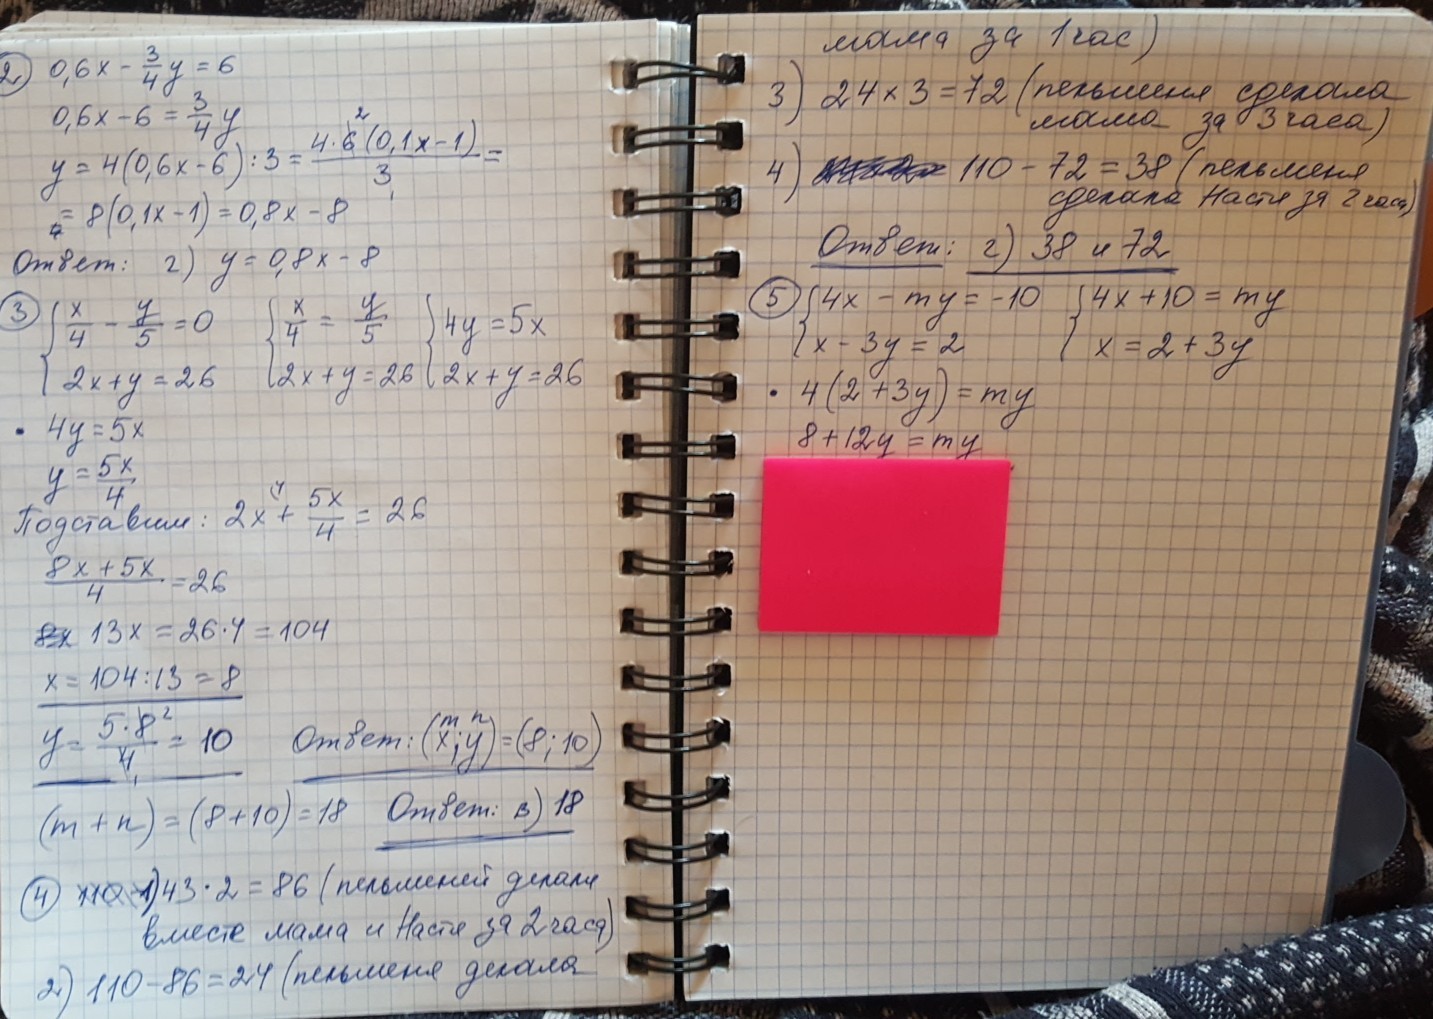 2) 0,6x - 3/4 y = 6
0,6x - 6 = 3/4 y
y = 4(0,6x - 6) : 3 = 4·6²(0,1x - 1)/3 =
= 8(0,1x - 1) = 0,8x - 8
Ответ: г) y = 0,8x - 8
3) { x/4 - y/5 = 0 { x/4 = y/5 { 4y = 5x
2x + y = 26 2x + y = 26 2x + y = 26
• 4y = 5x
y = 5x/4
Подставим: 2x⁴ + 5x/4 = 26
8x + 5x/4 = 26
13x = 26·4 = 104
x = 104 : 13 = 8
y = 5·8²/4 = 10 Ответ: (x^m; y^n) = (8; 10)
(m + n) = (8 + 10) = 18 Ответ: в) 18
4) 1) 43·2 = 86 (пельменей делали
вместе мама и Настя за 2 часа)
2) 110 - 86 = 24 (пельменя делала
мама за 1 час)
3) 24 × 3 = 72 (пельменя сделала
мама за 3 часа)
4) 110 - 72 = 38 (пельменя
сделала Настя за 2 часа)
Ответ: г) 38 и 72
5) { 4x - my = -10 { 4x + 10 = my
x - 3y = 2 x = 2 + 3y
• 4(2 + 3y) = my
8 + 12y = my